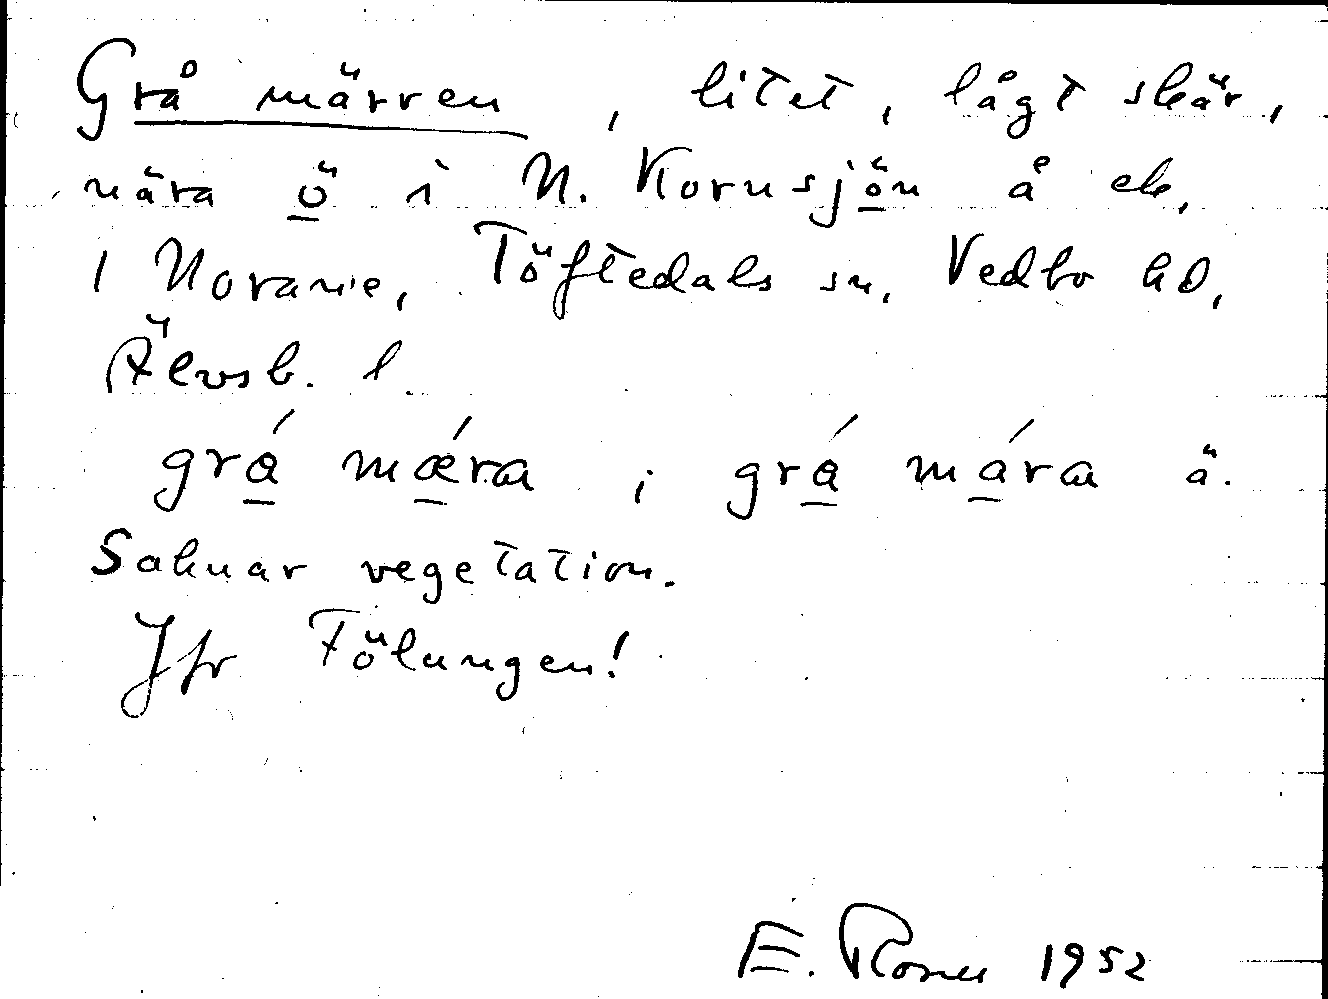 Grå märren, litet, lågt skär,
nära ö i N. Kornsjön å ek,
1 Norane, Töftedals sn, Vedbo hd,
Älvsb. l.
grá mǽra ; grá mára ä.
Saknar vegetation.
Jfr Fölungen!
E. 1952